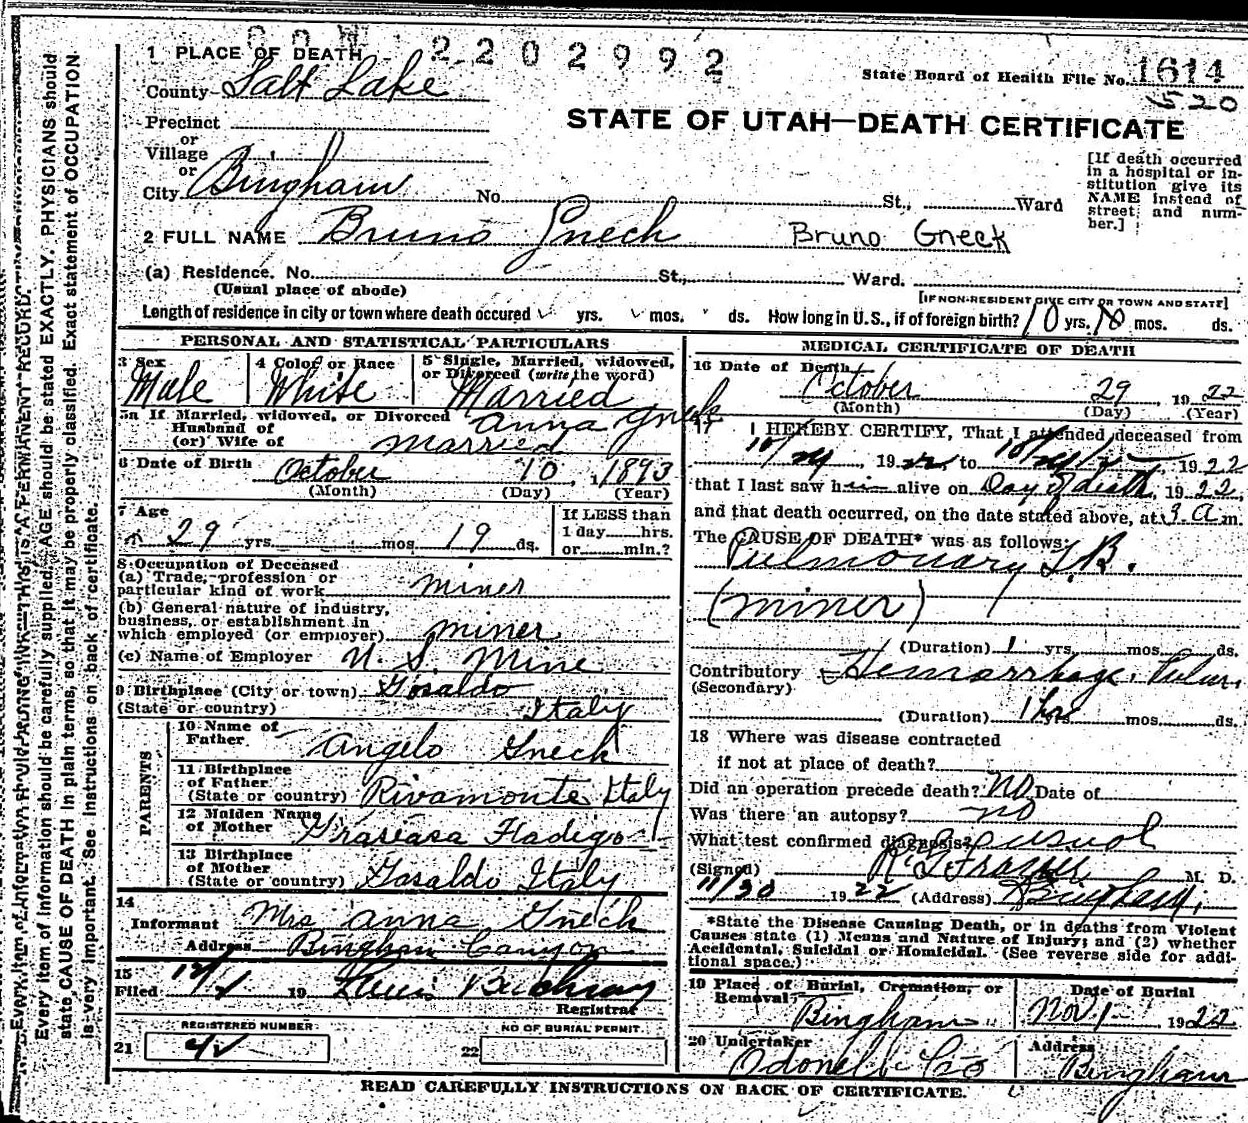 COW 2202992
1 PLACE OF DEATH
County Salt Lake
State Board of Health File No. 1614
520
STATE OF UTAH—DEATH CERTIFICATE
Precinct
or
Village
or
City Bingham No. St., Ward
[If death occurred in a hospital or institution give its NAME instead of street and number.]
2 FULL NAME Bruno Gnech Bruno Gneck
(a) Residence. No. St., Ward.
(Usual place of abode)
[IF NON-RESIDENT GIVE CITY OR TOWN AND STATE]
Length of residence in city or town where death occured yrs. mos. ds. How long in U.S., if of foreign birth? 10 yrs. 10 mos. ds.
PERSONAL AND STATISTICAL PARTICULARS
3 Sex Male
4 Color or Race White
5 Single, Married, widowed, or Divorced (write the word) Married
5a If Married, widowed, or Divorced
Husband of
(or) Wife of
Anna Gneck
married
6 Date of Birth October 10, 1893
(Month) (Day) (Year)
7 Age
29 yrs. mos. 19 ds.
If LESS than
1 day hrs.
or min.?
8 Occupation of Deceased
(a) Trade, profession or
particular kind of work miner
(b) General nature of industry,
business, or establishment in
which employed (or employer) miner
(c) Name of Employer U. S. Mine
9 Birthplace (City or town) Gosaldo
(State or country) Italy
PARENTS
10 Name of Father Angelo Gnech
11 Birthplace of Father
(State or country) Rivamonte Italy
12 Maiden Name
of Mother
13 Birthplace
of Mother
(State or country) Gosaldo Italy
14
Informant Mrs Anna Gnech
Address Bingham Canyon
15
Filed 12/1 19
Registrar
REGISTERED NUMBER
21 42
NO OF BURIAL PERMIT
22
MEDICAL CERTIFICATE OF DEATH
16 Date of Death October 29 1922
(Month) (Day) (Year)
17 I HEREBY CERTIFY, That I attended deceased from
1922 to 1922
that I last saw him alive on Day of death, 1922,
and that death occurred, on the date stated above, at 3 a.m.
The CAUSE OF DEATH* was as follows:
Pulmonary T.B.
(miner)
(Duration) 1 yrs. mos. ds.
Contributory Hemorrhage. Pulm.
(Secondary)
(Duration) 1 hr mos. ds.
18 Where was disease contracted
if not at place of death?
Did an operation precede death? no Date of
Was there an autopsy? no
What test confirmed diagnosis? usual
(Signed) Frazier M. D.
1922 (Address) Bingham,
*State the Disease Causing Death, or in deaths from Violent
Causes state (1) Means and Nature of Injury; and (2) whether
Accidental, Suicidal or Homicidal. (See reverse side for additional space.)
19 Place of Burial, Cremation, or
Removal Bingham
Date of Burial
Nov 1 1922
20 Undertaker Odonell & Co
Address Bingham
READ CAREFULLY INSTRUCTIONS ON BACK OF CERTIFICATE.
Every item of information should be carefully supplied. AGE should be stated EXACTLY. PHYSICIANS should
state CAUSE OF DEATH in plain terms, so that it may be properly classified. Exact statement of OCCUPATION
is very important. See instructions on back of certificate.